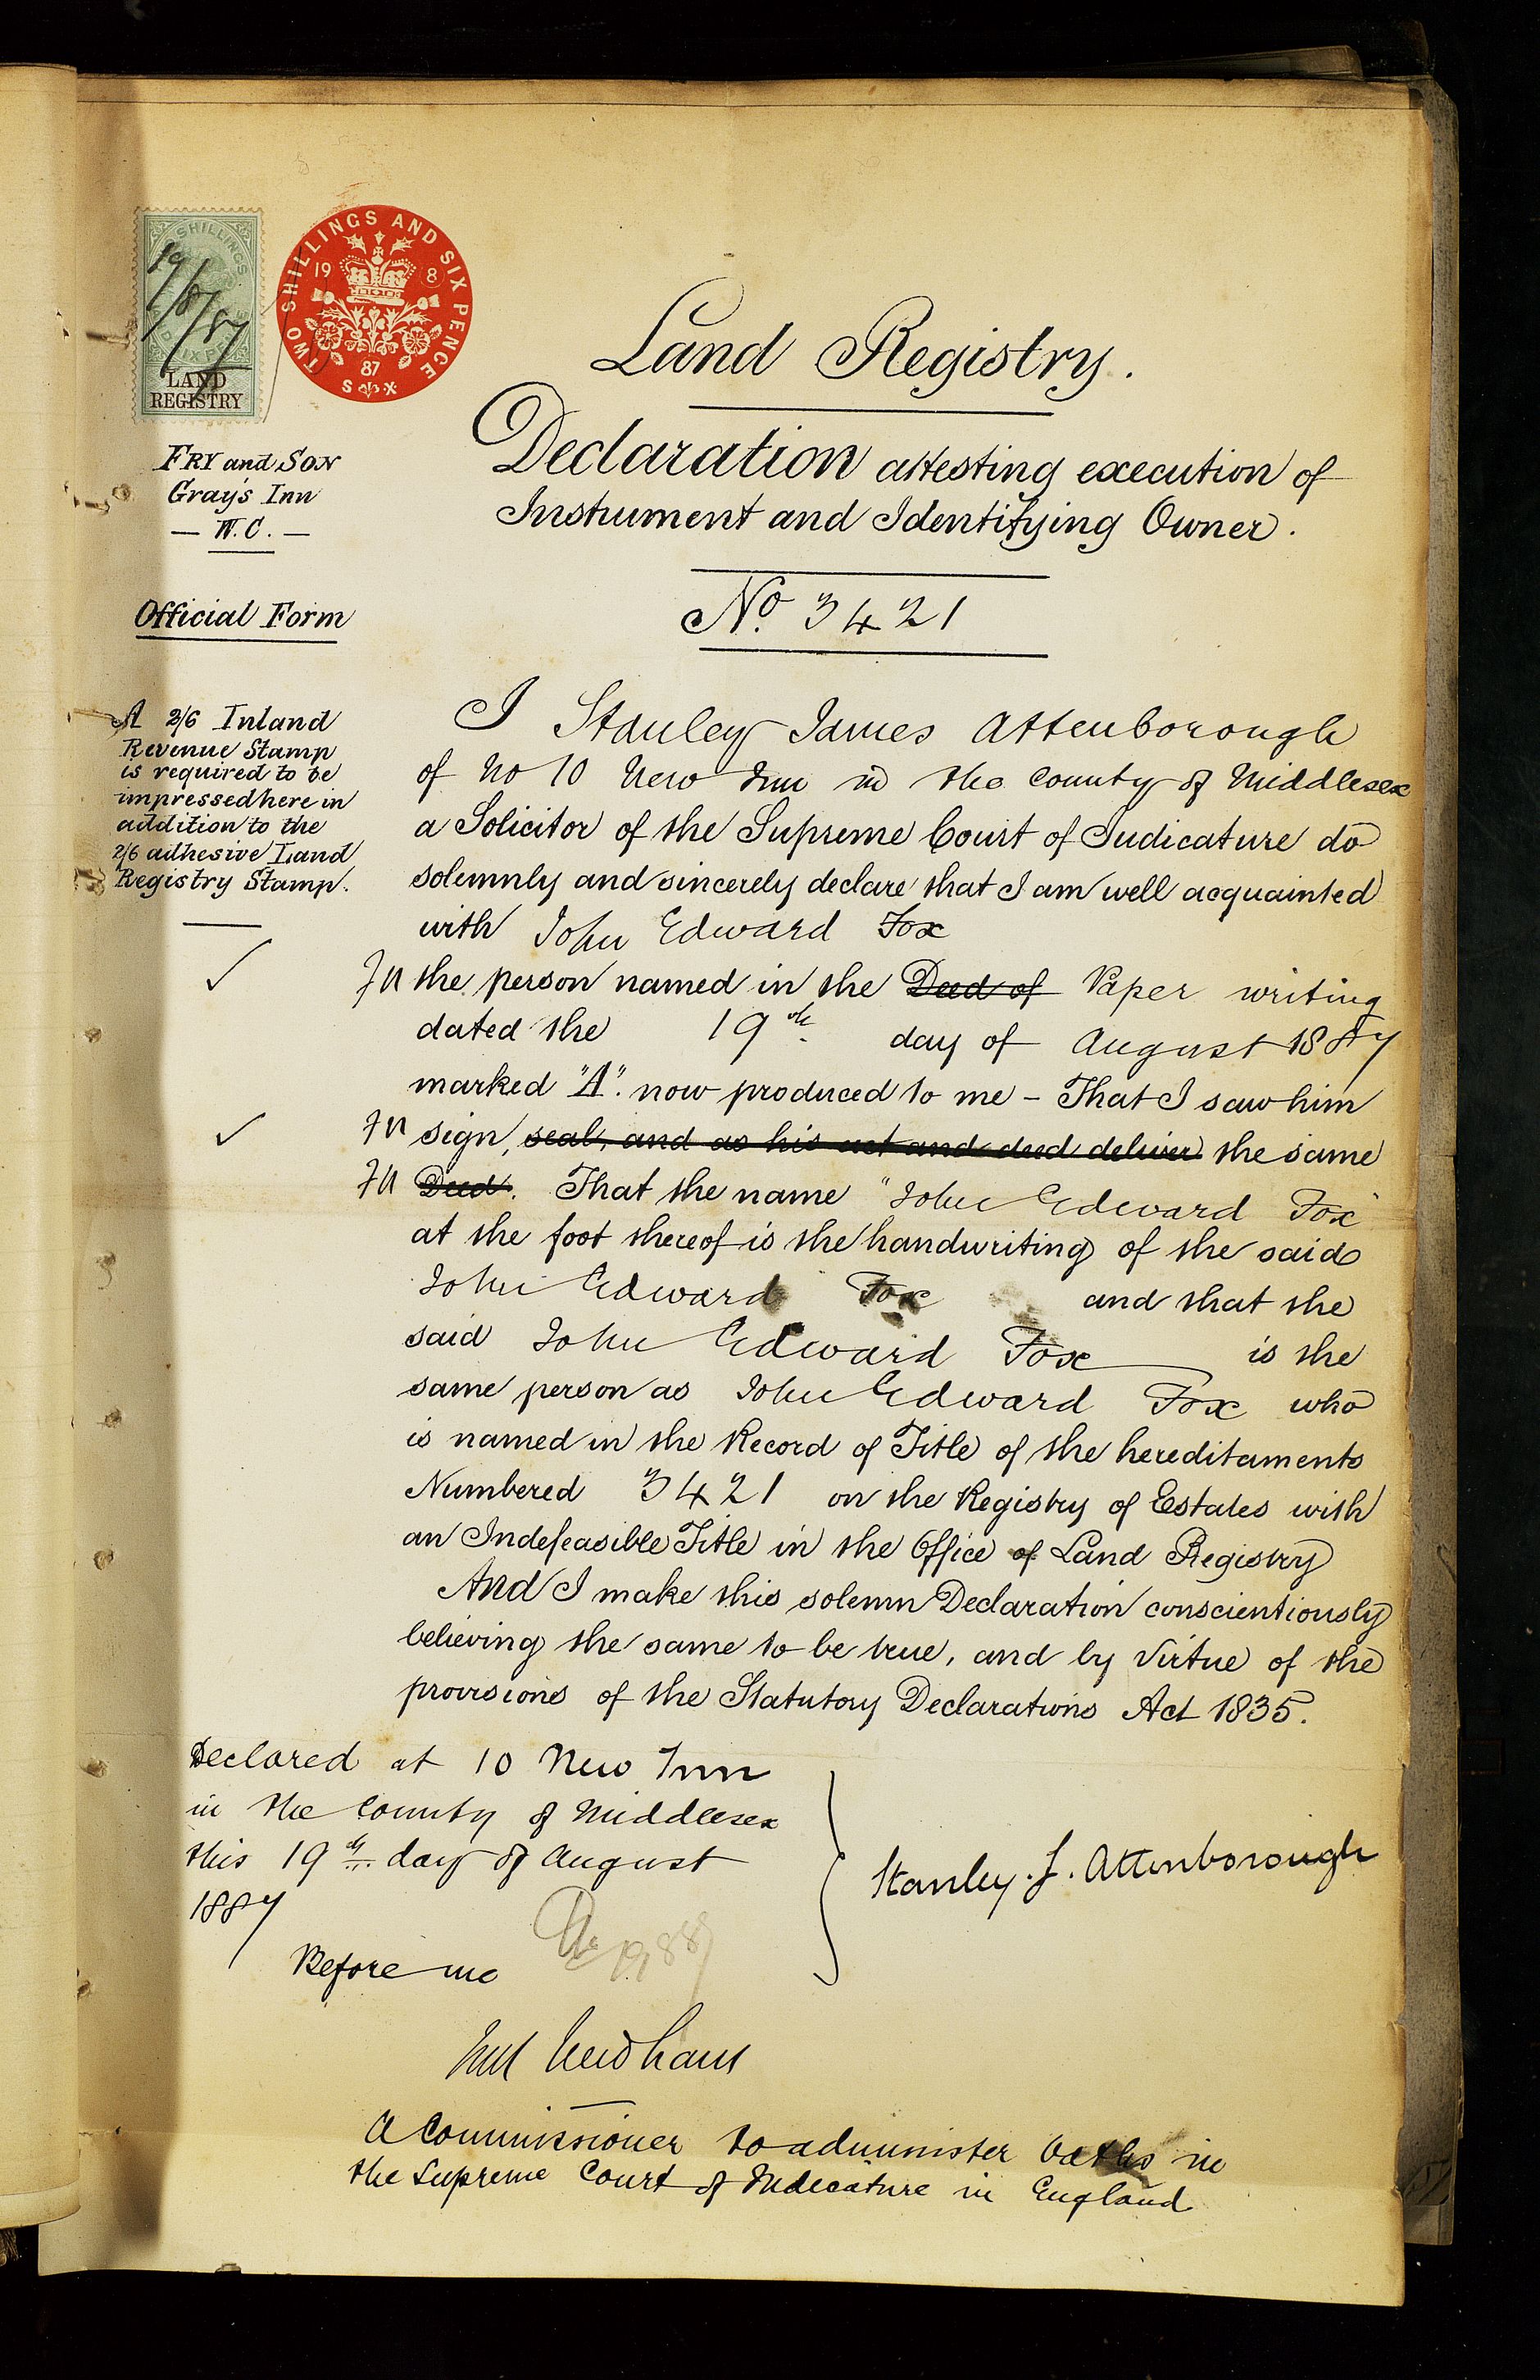 SHILLINGS
19/8/87
LAND
REGISTRY
TWO SHILLINGS AND SIX PENCE
19 8
87
S X
Land Registry.
Declaration attesting execution of
Instrument and Identifying Owner.
No. 3421
FRY and SON
Gray's Inn
— W.C. —
Official Form
A 2/6 Inland
Revenue Stamp
is required to be
impressed here in
addition to the
2/6 adhesive Land
Registry Stamp.
I Stanley James Attenborough
of No 10 New Inn in the County of Middlesex
a Solicitor of the Supreme Court of Judicature do
solemnly and sincerely declare that I am well acquainted
with John Edward Fox
the person named in the Deed of Paper writing
dated the 19th day of August 1887
marked "A". now produced to me – That I saw him
sign, seal, and as his act and deed deliver the same
Deed. That the name "John Edward Fox"
at the foot thereof is the handwriting of the said
John Edward Fox and that the
said John Edward Fox is the
same person as John Edward Fox who
is named in the Record of Title of the hereditaments
Numbered 3421 on the Registry of Estates with
an Indefeasible Title in the Office of Land Registry
And I make this solemn Declaration conscientiously
believing the same to be true, and by virtue of the
provisions of the Statutory Declarations Act 1835.
Declared at 10 New Inn
in the County of Middlesex
this 19th day of August
1887
Stanley. J. Attenborough
Before me
A Commissioner to administer Oaths in
the Supreme Court of Judicature in England